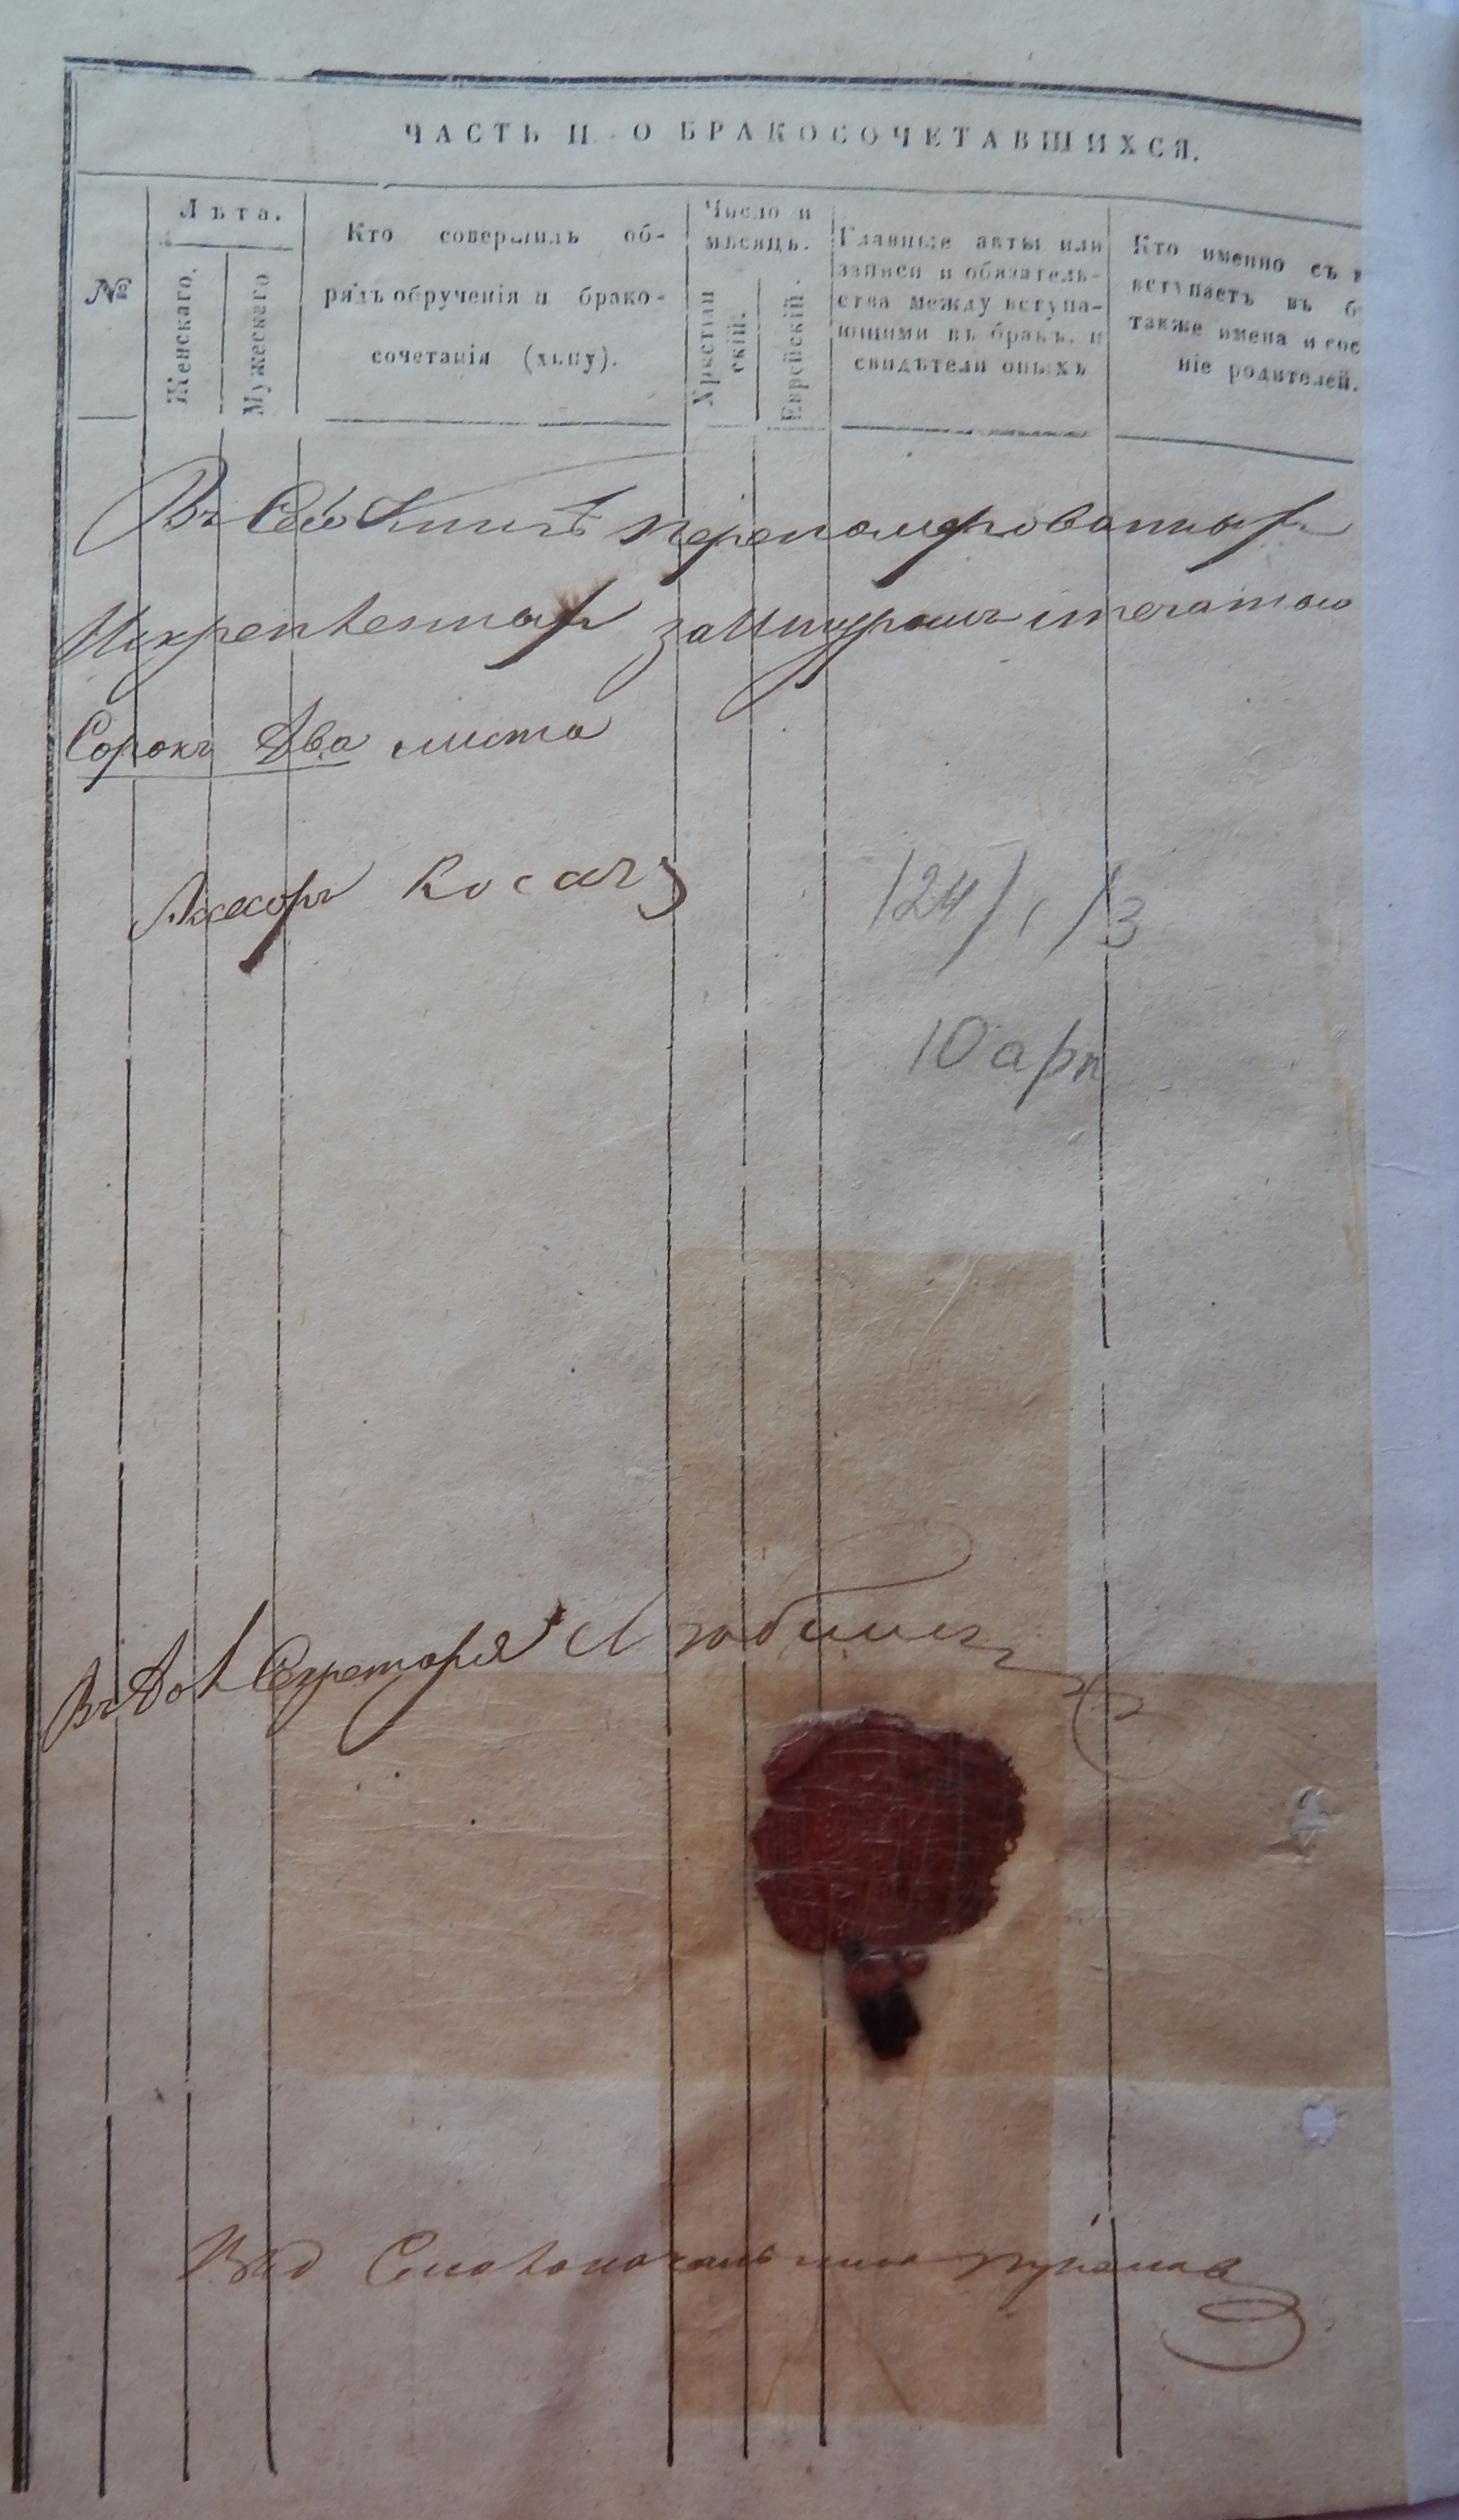 ЧАСТЬ II. О БРАКОСОЧЕТАВШИХСЯ.
№
Лѣта.
Женскаго.
Мужескаго
Кто совершилъ об-
рядъ обрученія и брако-
сочетанія (хупу).
Число и
мѣсяцъ.
Христіан
скій.
Еврейскій.
Главные акты или
записи и обязатель-
ства между вступа-
ющими въ бракъ, и
свидѣтели оныхъ
Кто именно съ
вступаетъ въ б
также имена и сос
ніе родителей.
Въ Сей Книгѣ перенумерованныхъ
Искрепленныхъ за Шнуромъ ипечатью
Сорокъ Два листа
Ассесоръ Косачъ
124/1/3
10 арк
Въ Дол Секретаря